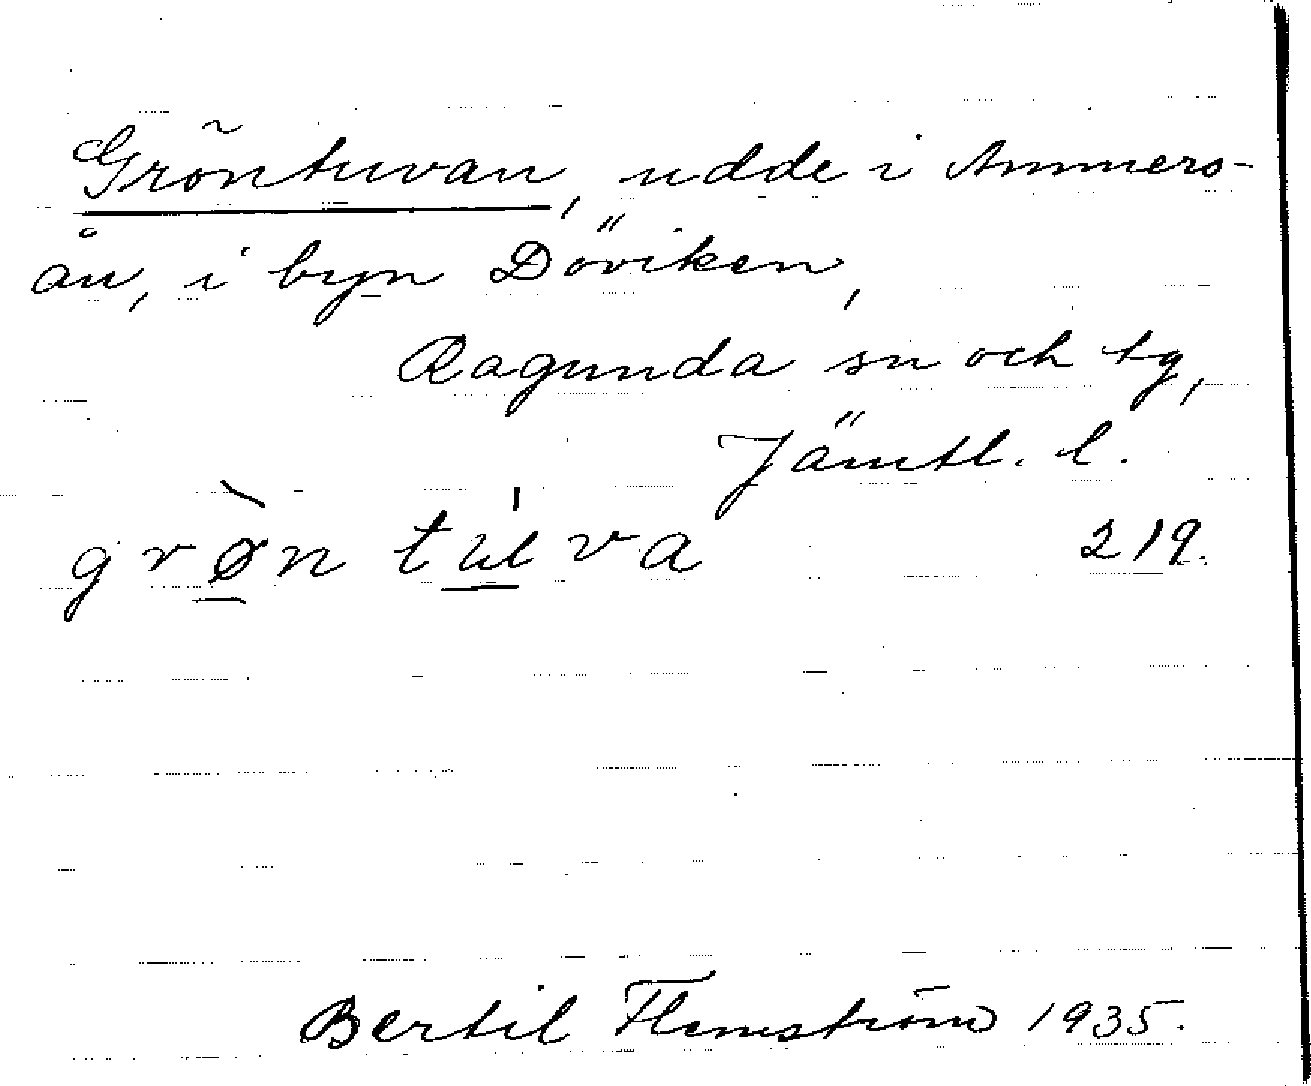 Gröntuvan, udde i Ammers-
ån, i byn Döviken,
Ragunda sn och tg,
Jämtl. l.
grø̀n tu̍va 219.
Bertil Flemström 1935.